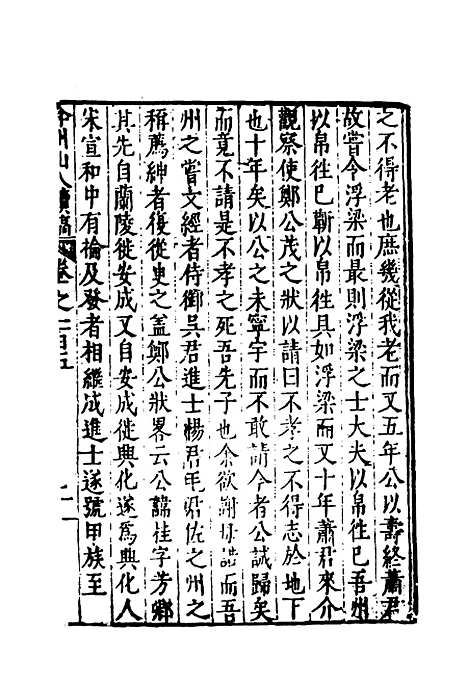 之不得老也庶幾從我老而又五年公以壽終蕭君
故嘗令浮梁而最則浮梁之士大夫以帛徃已吾州
以帛徃已蘄以帛徃具如浮梁而又十年蕭君來介
觀察使鄭公茂之狀以請曰不孝之不得志於地下
也十年矣以公之未寧宇而不敢請今者公誠歸矣
而竟不請是不孝之死吾先子也余欲謝毋諾而吾
州之嘗文經者侍御吳君進士楊君毛君佐之州之
稱薦紳者復從臾之蓋鄭公狀畧云公諱桂字芳鄉
其先自蘭陵徙安成又自安成徙興化遂爲興化人
宋宣和中有棆及發者相繼成進士遂號甲族至
弇州山人續稿 卷之一百五